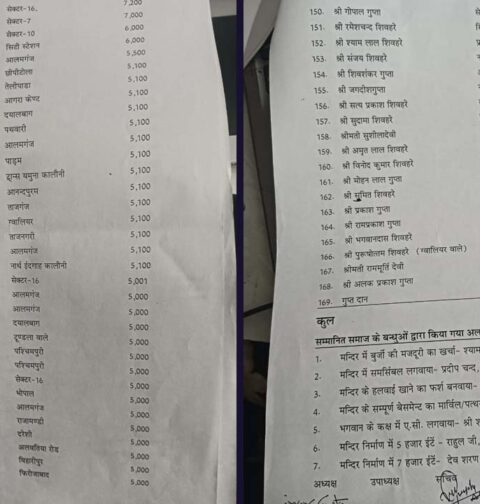 सेक्टर-16, 7,200
सेक्टर-7 7,000
सेक्टर-10 6,000
सिटी स्टेशन 6,000
आलमगंज 5,500
छीपीटोला 5,100
तेलीपाडा 5,100
आगरा केण्ट 5,100
दयालबाग 5,100
पथवारी 5,100
आलमगंज 5,100
पाड्म 5,100
ट्रान्स यमुना कालौनी 5,100
आनन्दपुरम 5,100
ताजगंज 5,100
ग्वालियर 5,100
ताजनगरी 5,100
आलमगंज 5,100
नार्थ ईदगाह कालौनी 5,100
सेक्टर-16 5,001
आलमगंज 5,000
आलमगंज 5,000
दयालबाग 5,000
टूण्डला वाले 5,000
पश्चिमपुरी 5,000
पश्चिमपुरी 5,000
सेक्टर-16 5,000
भोपाल 5,000
आलमगंज 5,000
राजामण्डी 5,000
दरेशी 5,000
अलबतिया रोड 5,000
बिहारीपुर 5,000
फिरोजाबाद 5,000
150. श्री गोपाल गुप्ता
151. श्री रमेशचन्द शिवहरे
152. श्री श्याम लाल शिवहरे
153. श्री संजय शिवहरे
154. श्री शिवशंकर गुप्ता
155. श्री जगदीशगुप्ता
156. श्री सत्य प्रकाश शिवहरे
157. श्री सुदामा शिवहरे
158. श्रीमती सुशीलादेवी
159. श्री अमृत लाल शिवहरे
160. श्री विनोद कुमार शिवहरे
161. श्री मोहन लाल गुप्ता
162. श्री सुमित शिवहरे
163. श्री प्रकाश गुप्ता
164. श्री रामप्रकाश गुप्ता
165. श्री भगवानदास शिवहरे
166. श्री पुरूषोत्तम शिवहरे (ग्वालियर वाले)
167. श्रीमती राममूर्ति देवी
168. श्री अलक प्रकाश गुप्ता
169. गुप्त दान
कुल
सम्मानित समाज के बन्धुओं द्वारा किया गया अल
1. मन्दिर में बुर्जी की मजदूरी का खर्चा- श्याम
2. मन्दिर में समर्सिबल लगवाया- प्रदीप चन्द,
3. मन्दिर के हलवाई खाने का फर्श बनवाया-
4. मन्दिर के सम्पूर्ण बेसमेन्ट का मार्विल/पत्थ
5. भगवान के कक्ष में ए.सी. लगवाया- श्री श
6. मन्दिर निर्माण में 5 हजार ईंटें - राहुल जी,
7. मन्दिर निर्माण में 7 हजार ईंटें- देव शरण
अध्यक्ष उपाध्यक्ष सचिव